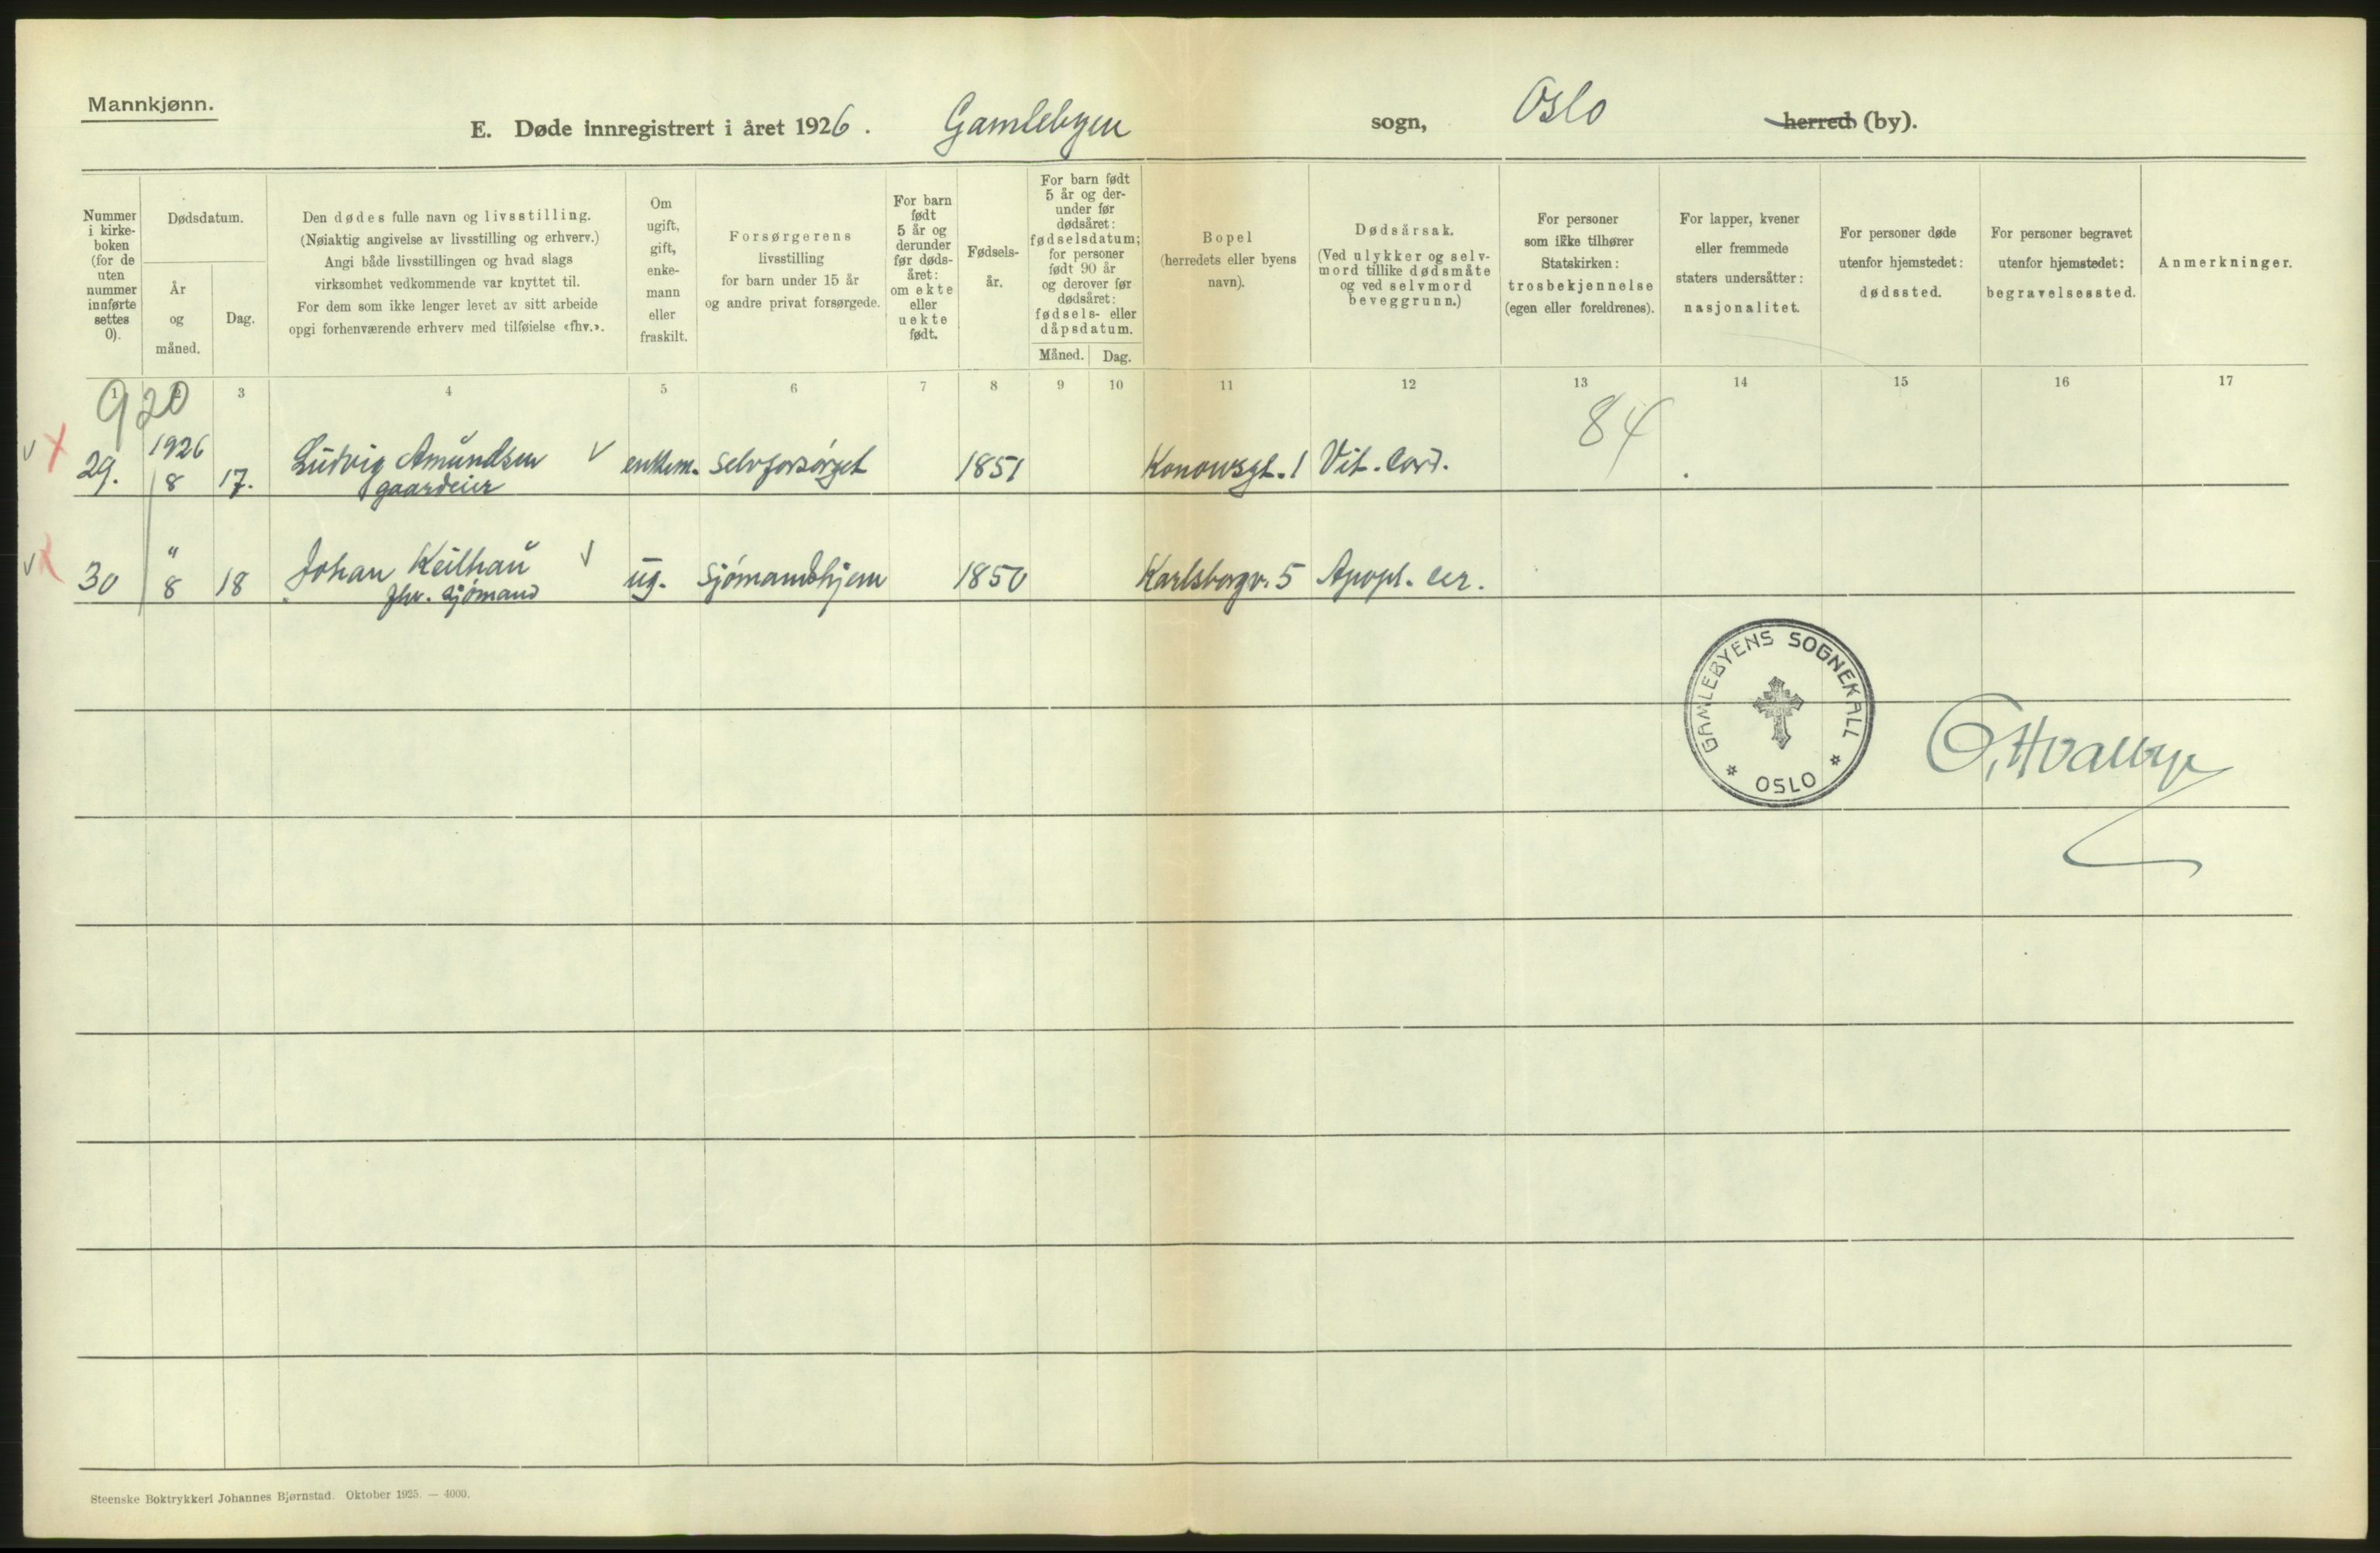 Mannkjønn.
E. Døde innregistrert i året 1926. Gamlebyen sogn, Oslo herred (by).
Nummer i kirke-boken (for de uten nummer innførte settes 0).
Dødsdatum.
År og måned.
Dag.
Den dødes fulle navn og livsstilling.
(Nøiaktig angivelse av livsstilling og erhverv.)
Angi både livsstillingen og hvad slags
virksomhet vedkommende var knyttet til.
For dem som ikke lenger levet av sitt arbeide
opgi forhenværende erhverv med tilføielse «fhv.».
Om ugift, gift, enke-mann eller fraskilt.
Forsørgerens
livsstilling
for barn under 15 år
og andre privat forsørgede.
For barn født 5 år og derunder før døds-året: om ekte eller uekte født.
Fødsels-år.
For barn født 5 år og der-under før dødsåret: fødselsdatum; for personer født 90 år og derover før dødsåret: fødsels- eller dåpsdatum.
Måned. Dag.
Bopel
(herredets eller byens
navn).
Dødsårsak.
(Ved ulykker og selv-
mord tillike dødsmåte
og ved selvmord
beveggrunn.)
For personer
som ikke tilhører
Statskirken:
trosbekjennelse
(egen eller foreldrenes).
For lapper, kvener
eller fremmede
staters undersåtter:
nasjonalitet.
For personer døde
utenfor hjemstedet:
dødssted.
For personer begravet
utenfor hjemstedet:
begravelsessted.
Anmerkninger.
1 2 3 4 5 6 7 8 9 10 11 12 13 14 15 16 17
920
84
1926
29. 8 17. Ludvig Amundsen enkem. selvforsørget 1851 Konowsgt. 1 Vit. Cord.
gaardeier
"
30 8 18 Johan Keilhau ug. Sjømandshjem 1850 Karlsborgv. 5 Apopl. cer.
fhv. sjømand
GAMLEBYENS SOGNEKALL
OSLO
Steenske Boktrykkeri Johannes Bjørnstad. Oktober 1925. — 4000.